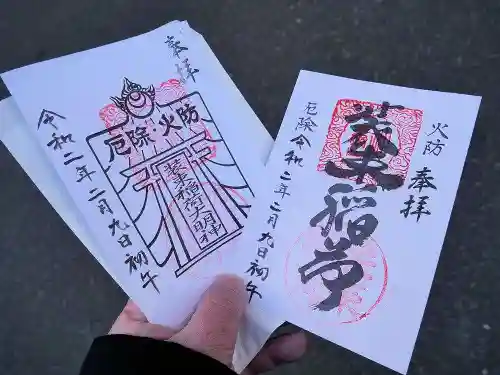 奉拝
厄除・火防
装束稲荷大明神
令和二年二月九日初午
火防
奉拝
装束稲荷
厄除
令和二年二月九日初午